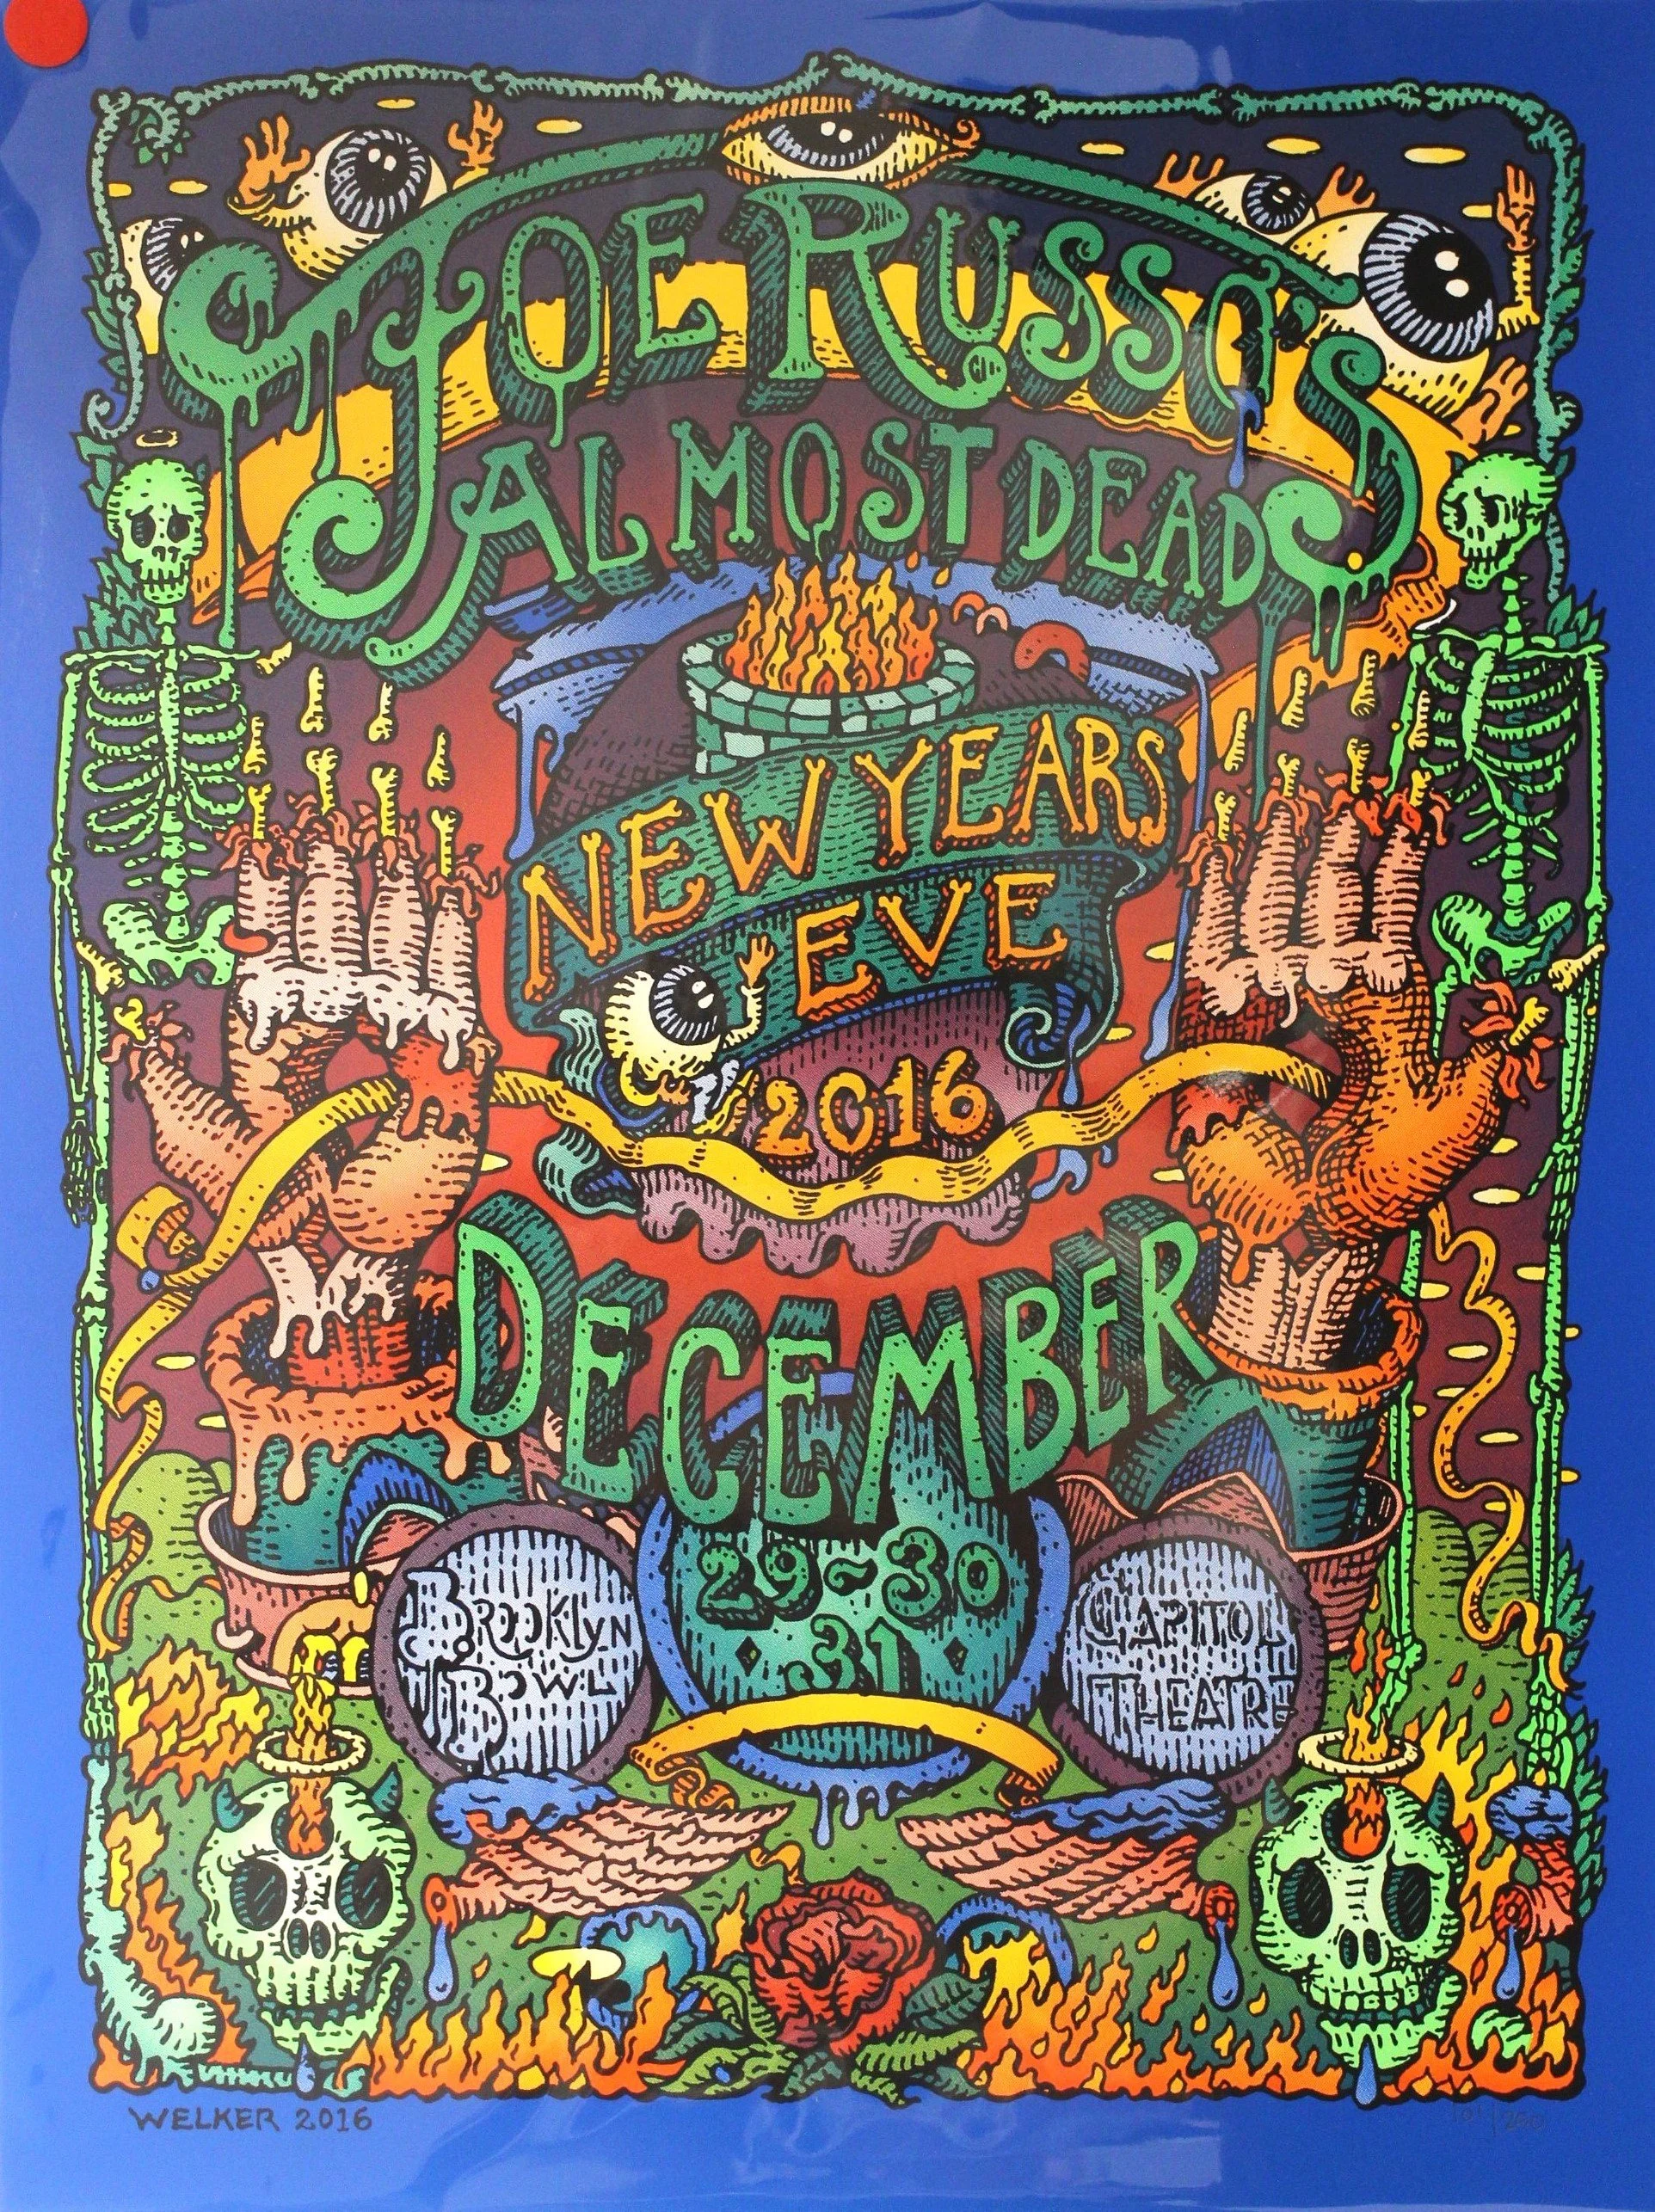 JOE RUSSO'S
ALMOST DEAD
NEW YEARS
EVE
2016
DECEMBER
29~30
31
BROOKLYN
BOWL
CAPITOL
THEATRE
WELKER 2016